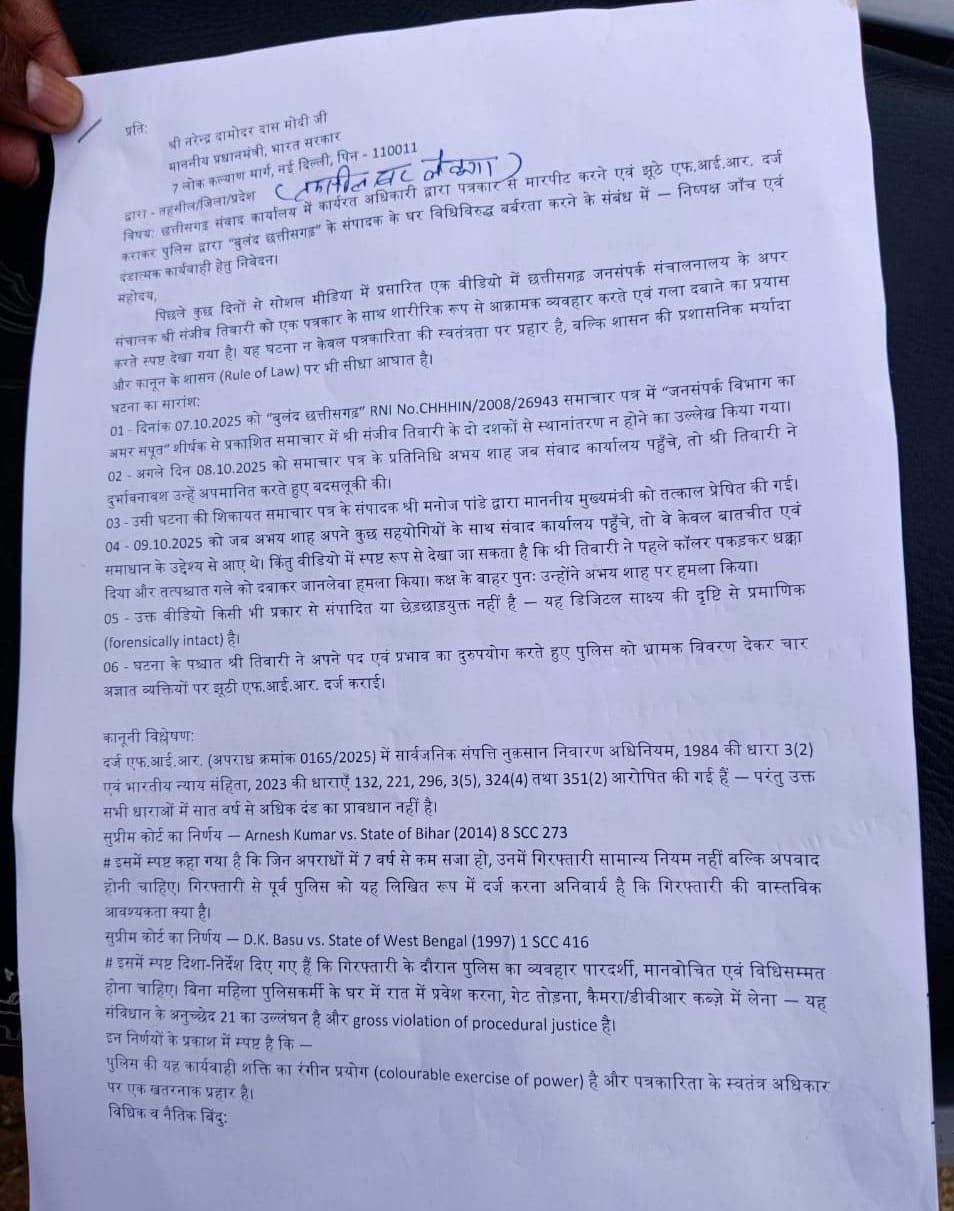 प्रति:
श्री नरेन्द्र दामोदर दास मोदी जी
माननीय प्रधानमंत्री, भारत सरकार
7 लोक कल्याण मार्ग, नई दिल्ली, पिन - 110011
द्वारा - तहसील/जिला/प्रदेश
विषय: छत्तीसगढ़ संवाद कार्यालय में कार्यरत अधिकारी द्वारा पत्रकार से मारपीट करने एवं झूठे एफ.आई.आर. दर्ज
कराकर पुलिस द्वारा "बुलंद छत्तीसगढ़" के संपादक के घर विधिविरुद्ध बर्बरता करने के संबंध में — निष्पक्ष जाँच एवं
दंडात्मक कार्यवाही हेतु निवेदन।
महोदय,
पिछले कुछ दिनों से सोशल मीडिया में प्रसारित एक वीडियो में छत्तीसगढ़ जनसंपर्क संचालनालय के अपर
संचालक श्री संजीव तिवारी को एक पत्रकार के साथ शारीरिक रूप से आक्रामक व्यवहार करते एवं गला दबाने का प्रयास
करते स्पष्ट देखा गया है। यह घटना न केवल पत्रकारिता की स्वतंत्रता पर प्रहार है, बल्कि शासन की प्रशासनिक मर्यादा
और कानून के शासन (Rule of Law) पर भी सीधा आघात है।
घटना का सारांश:
01 - दिनांक 07.10.2025 को "बुलंद छत्तीसगढ़" RNI No.CHHHIN/2008/26943 समाचार पत्र में "जनसंपर्क विभाग का
अमर सपूत" शीर्षक से प्रकाशित समाचार में श्री संजीव तिवारी के दो दशकों से स्थानांतरण न होने का उल्लेख किया गया।
02 - अगले दिन 08.10.2025 को समाचार पत्र के प्रतिनिधि अभय शाह जब संवाद कार्यालय पहुँचे, तो श्री तिवारी ने
दुर्भावनावश उन्हें अपमानित करते हुए बदसलूकी की।
03 - उसी घटना की शिकायत समाचार पत्र के संपादक श्री मनोज पांडे द्वारा माननीय मुख्यमंत्री को तत्काल प्रेषित की गई।
04 - 09.10.2025 को जब अभय शाह अपने कुछ सहयोगियों के साथ संवाद कार्यालय पहुँचे, तो वे केवल बातचीत एवं
समाधान के उद्देश्य से आए थे। किंतु वीडियो में स्पष्ट रूप से देखा जा सकता है कि श्री तिवारी ने पहले कॉलर पकड़कर धक्का
दिया और तत्पश्चात गले को दबाकर जानलेवा हमला किया। कक्ष के बाहर पुनः उन्होंने अभय शाह पर हमला किया।
05 - उक्त वीडियो किसी भी प्रकार से संपादित या छेड़छाड़युक्त नहीं है — यह डिजिटल साक्ष्य की दृष्टि से प्रमाणिक
(forensically intact) है।
06 - घटना के पश्चात श्री तिवारी ने अपने पद एवं प्रभाव का दुरुपयोग करते हुए पुलिस को भ्रामक विवरण देकर चार
अज्ञात व्यक्तियों पर झूठी एफ.आई.आर. दर्ज कराई।
कानूनी विश्लेषण:
दर्ज एफ.आई.आर. (अपराध क्रमांक 0165/2025) में सार्वजनिक संपत्ति नुक़सान निवारण अधिनियम, 1984 की धारा 3(2)
एवं भारतीय न्याय संहिता, 2023 की धाराएँ 132, 221, 296, 3(5), 324(4) तथा 351(2) आरोपित की गई हैं — परंतु उक्त
सभी धाराओं में सात वर्ष से अधिक दंड का प्रावधान नहीं है।
सुप्रीम कोर्ट का निर्णय — Arnesh Kumar vs. State of Bihar (2014) 8 SCC 273
# इसमें स्पष्ट कहा गया है कि जिन अपराधों में 7 वर्ष से कम सजा हो, उनमें गिरफ्तारी सामान्य नियम नहीं बल्कि अपवाद
होनी चाहिए। गिरफ्तारी से पूर्व पुलिस को यह लिखित रूप में दर्ज करना अनिवार्य है कि गिरफ्तारी की वास्तविक
आवश्यकता क्या है।
सुप्रीम कोर्ट का निर्णय — D.K. Basu vs. State of West Bengal (1997) 1 SCC 416
# इसमें स्पष्ट दिशा-निर्देश दिए गए हैं कि गिरफ्तारी के दौरान पुलिस का व्यवहार पारदर्शी, मानवोचित एवं विधिसम्मत
होना चाहिए। बिना महिला पुलिसकर्मी के घर में रात में प्रवेश करना, गेट तोड़ना, कैमरा/डीवीआर कब्ज़े में लेना — यह
संविधान के अनुच्छेद 21 का उल्लंघन है और gross violation of procedural justice है।
इन निर्णयों के प्रकाश में स्पष्ट है कि —
पुलिस की यह कार्यवाही शक्ति का रंगीन प्रयोग (colourable exercise of power) है और पत्रकारिता के स्वतंत्र अधिकार
पर एक खतरनाक प्रहार है।
विधिक व नैतिक बिंदु: